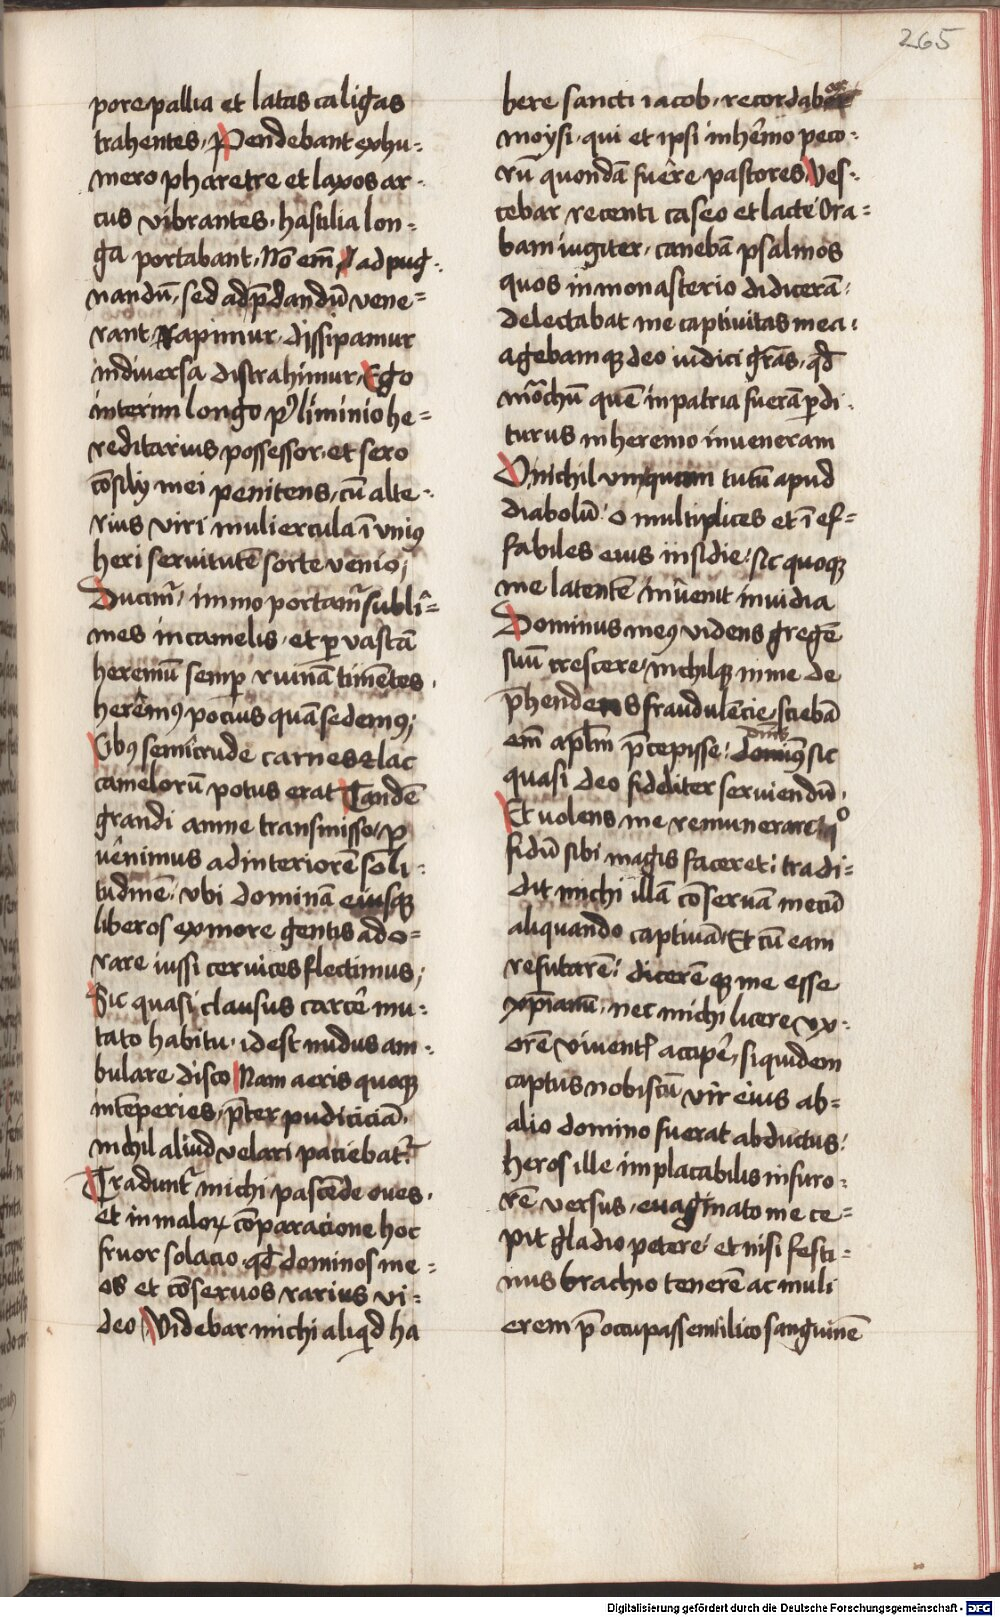 265
pore pallia et latas caligas
trahentes. Pendebant ex hu-
mero pharetre et laxos ar-
cus vibrantes. hastilia lon-
ga portabant. Nō em̄ ad pug-
nandū, sed ad p̄dandū vene-
rant. Rapimur. dissipamur
in diversa distrahimur. Ego
interim longo p⁹liminio he-
reditarius possessor. et sero
cōsilij mei penitens, cū alte-
rius viri muliercula ī vniꝰ
heri servitutē sorte venio;
Ducimr̄, immo portamr̄ subli-
mes in camelis. et ꝑ vastā
heremū semꝑ ruinā timētes.
herēmꝰ pocius quā sedemꝰ;
Cibꝰ semicrude carnes & lac
camelorū potus erat Tandē
grandi amne transmisso ꝑ
vēnimus ad interiorē soli-
tudinē. vbi dominā eiusqꝫ
liberos ex more gentis ado-
rare iussi cervices flectimus;
Sic quasi clausus carcē mu-
tato habitu. id est nudus am-
bulare disco Nam aeris quoqꝫ
intēperies, p̄ter pudiciciā.
nichil aliud velari paciebat̄.
Tradunt̄ michi pascēde oves.
et in maloꝝ cōparacione hoc
fruor solacio. qd̄ dominos me-
os et cōservos rarius vi-
deo Videbar michi aliqd̄ ha
bere sancti iacob. recordabar
moysi. qui et ipsi in hēmo peco-
rū quondā fuēre pastores. Ves-
cebar recenti caseo et lacte Ora-
bam iugiter. canebā psalmos
quos in monasterio didicerā.
delectabat me captivitas mea.
agebamqꝫ deo iudici grās. qd̄
mōchū quē in patria fuerā ꝑdi-
turus in heremo inveneram
O nichil vmquam tutū apud
diabolū. o multiplices et ī ef-
fabiles eius insidie. sic quoqꝫ
me latentē invēnit invidia
Dominus meꝰ videns gregē
suū crescere, nichilqꝫ in me de
p̄hendens fraudulēcie, sciebā
em̄ aplm̄ p̄cepisse. dominꝰ sic
dn̄is
quasi deo fideliter serviendū.
Et volens me remunerare qͦ
fidū sibi magis faceret. tradi-
dit michi illā cōservā mecū
aliquando captivā. Et cū eam
refutarē. dicerēqꝫ me esse
xp̄ianū. nec michi licere vx-
orē viventꝭ accipē, siquidem
captus nobiscū vir eius ab-
alio domino fuerat abductus.
heros ille implacabilis in furo-
rē versus. evaginato me ce-
pit gladio petere. et nisi festi-
nus brachio tenerē ac muli
erem p̄occupassem ilico sanguinē
Digitalisierung gefördert durch die Deutsche Forschungsgemeinschaft - DFG